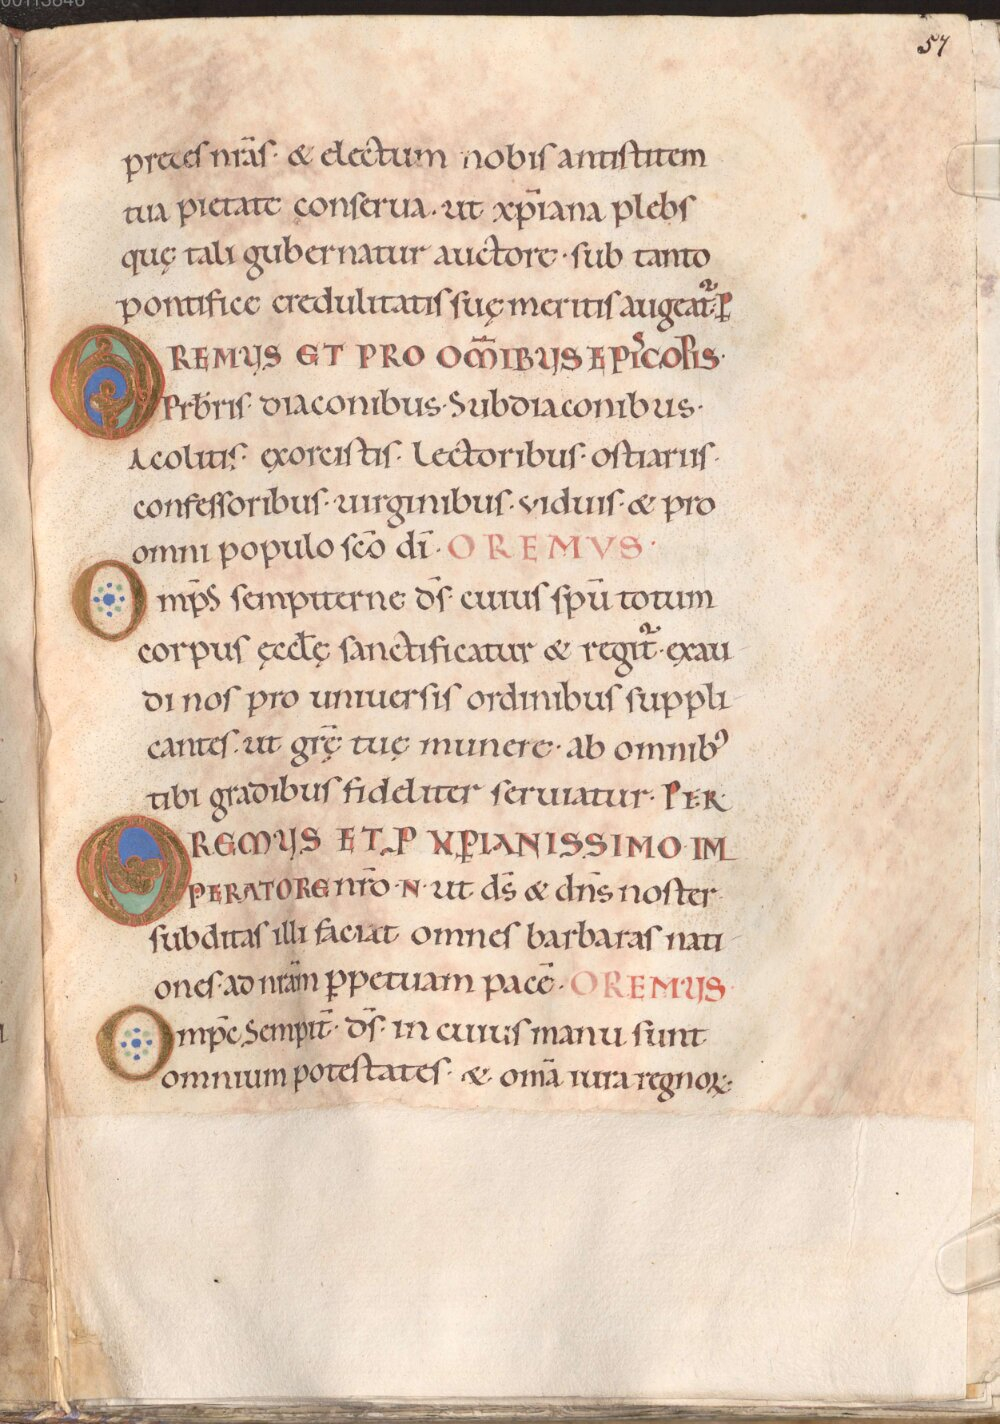 57
preces nr̄as· & electum nobis antistitem
tua pietate conserua· ut xp̄iana plebs
quę tali gubernatur auctore· sub tanto
pontifice credulitatis suę meritis augeat᷑· P
OREMUS ET PRO OM̄IBUS EPISCOPIS·
Prb̄ris· diaconibus· Subdiaconibus·
Acolitis· exorcistis· Lectoribus· ostiariis·
confessoribus· uirginibus· viduis· & pro
omni populo sc̄o dī· OREMVS·
Omp̄s sempiterne ds̄· cuius sp̄u totum
corpus ęccl̄ę sanctificatur & regit᷑· exau
di nos pro uniuersis ordinibus suppli
cantes· ut gr̄ę tuę munere· ab omnibꝰ
tibi gradibus fideliter seruiatur· PER
OREMUS ET P XP̄IANISSIMO IM
PERATORE nr̄o· N· ut ds̄ & dn̄s noster
subditas illi faciat omnes barbaras nati
ones· ad nr̄am ꝑpetuam pacē· OREMUS
Omp̄e Sempit̄· ds̄· in cuius manu sunt
omnium potestates· & om̄a iura regnoꝝ·